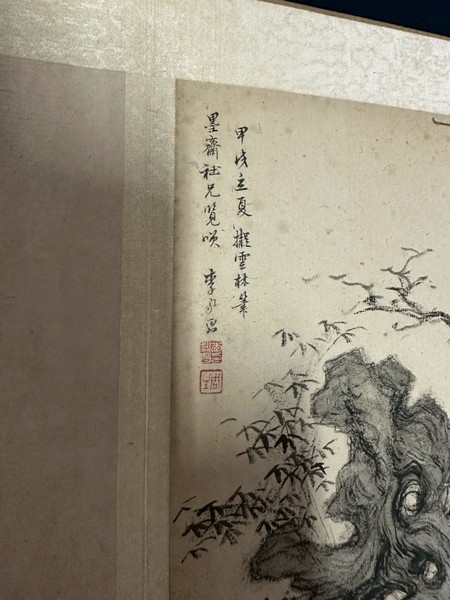 甲戌立夏擬雲林筆
墨齋社兄覽唉 李